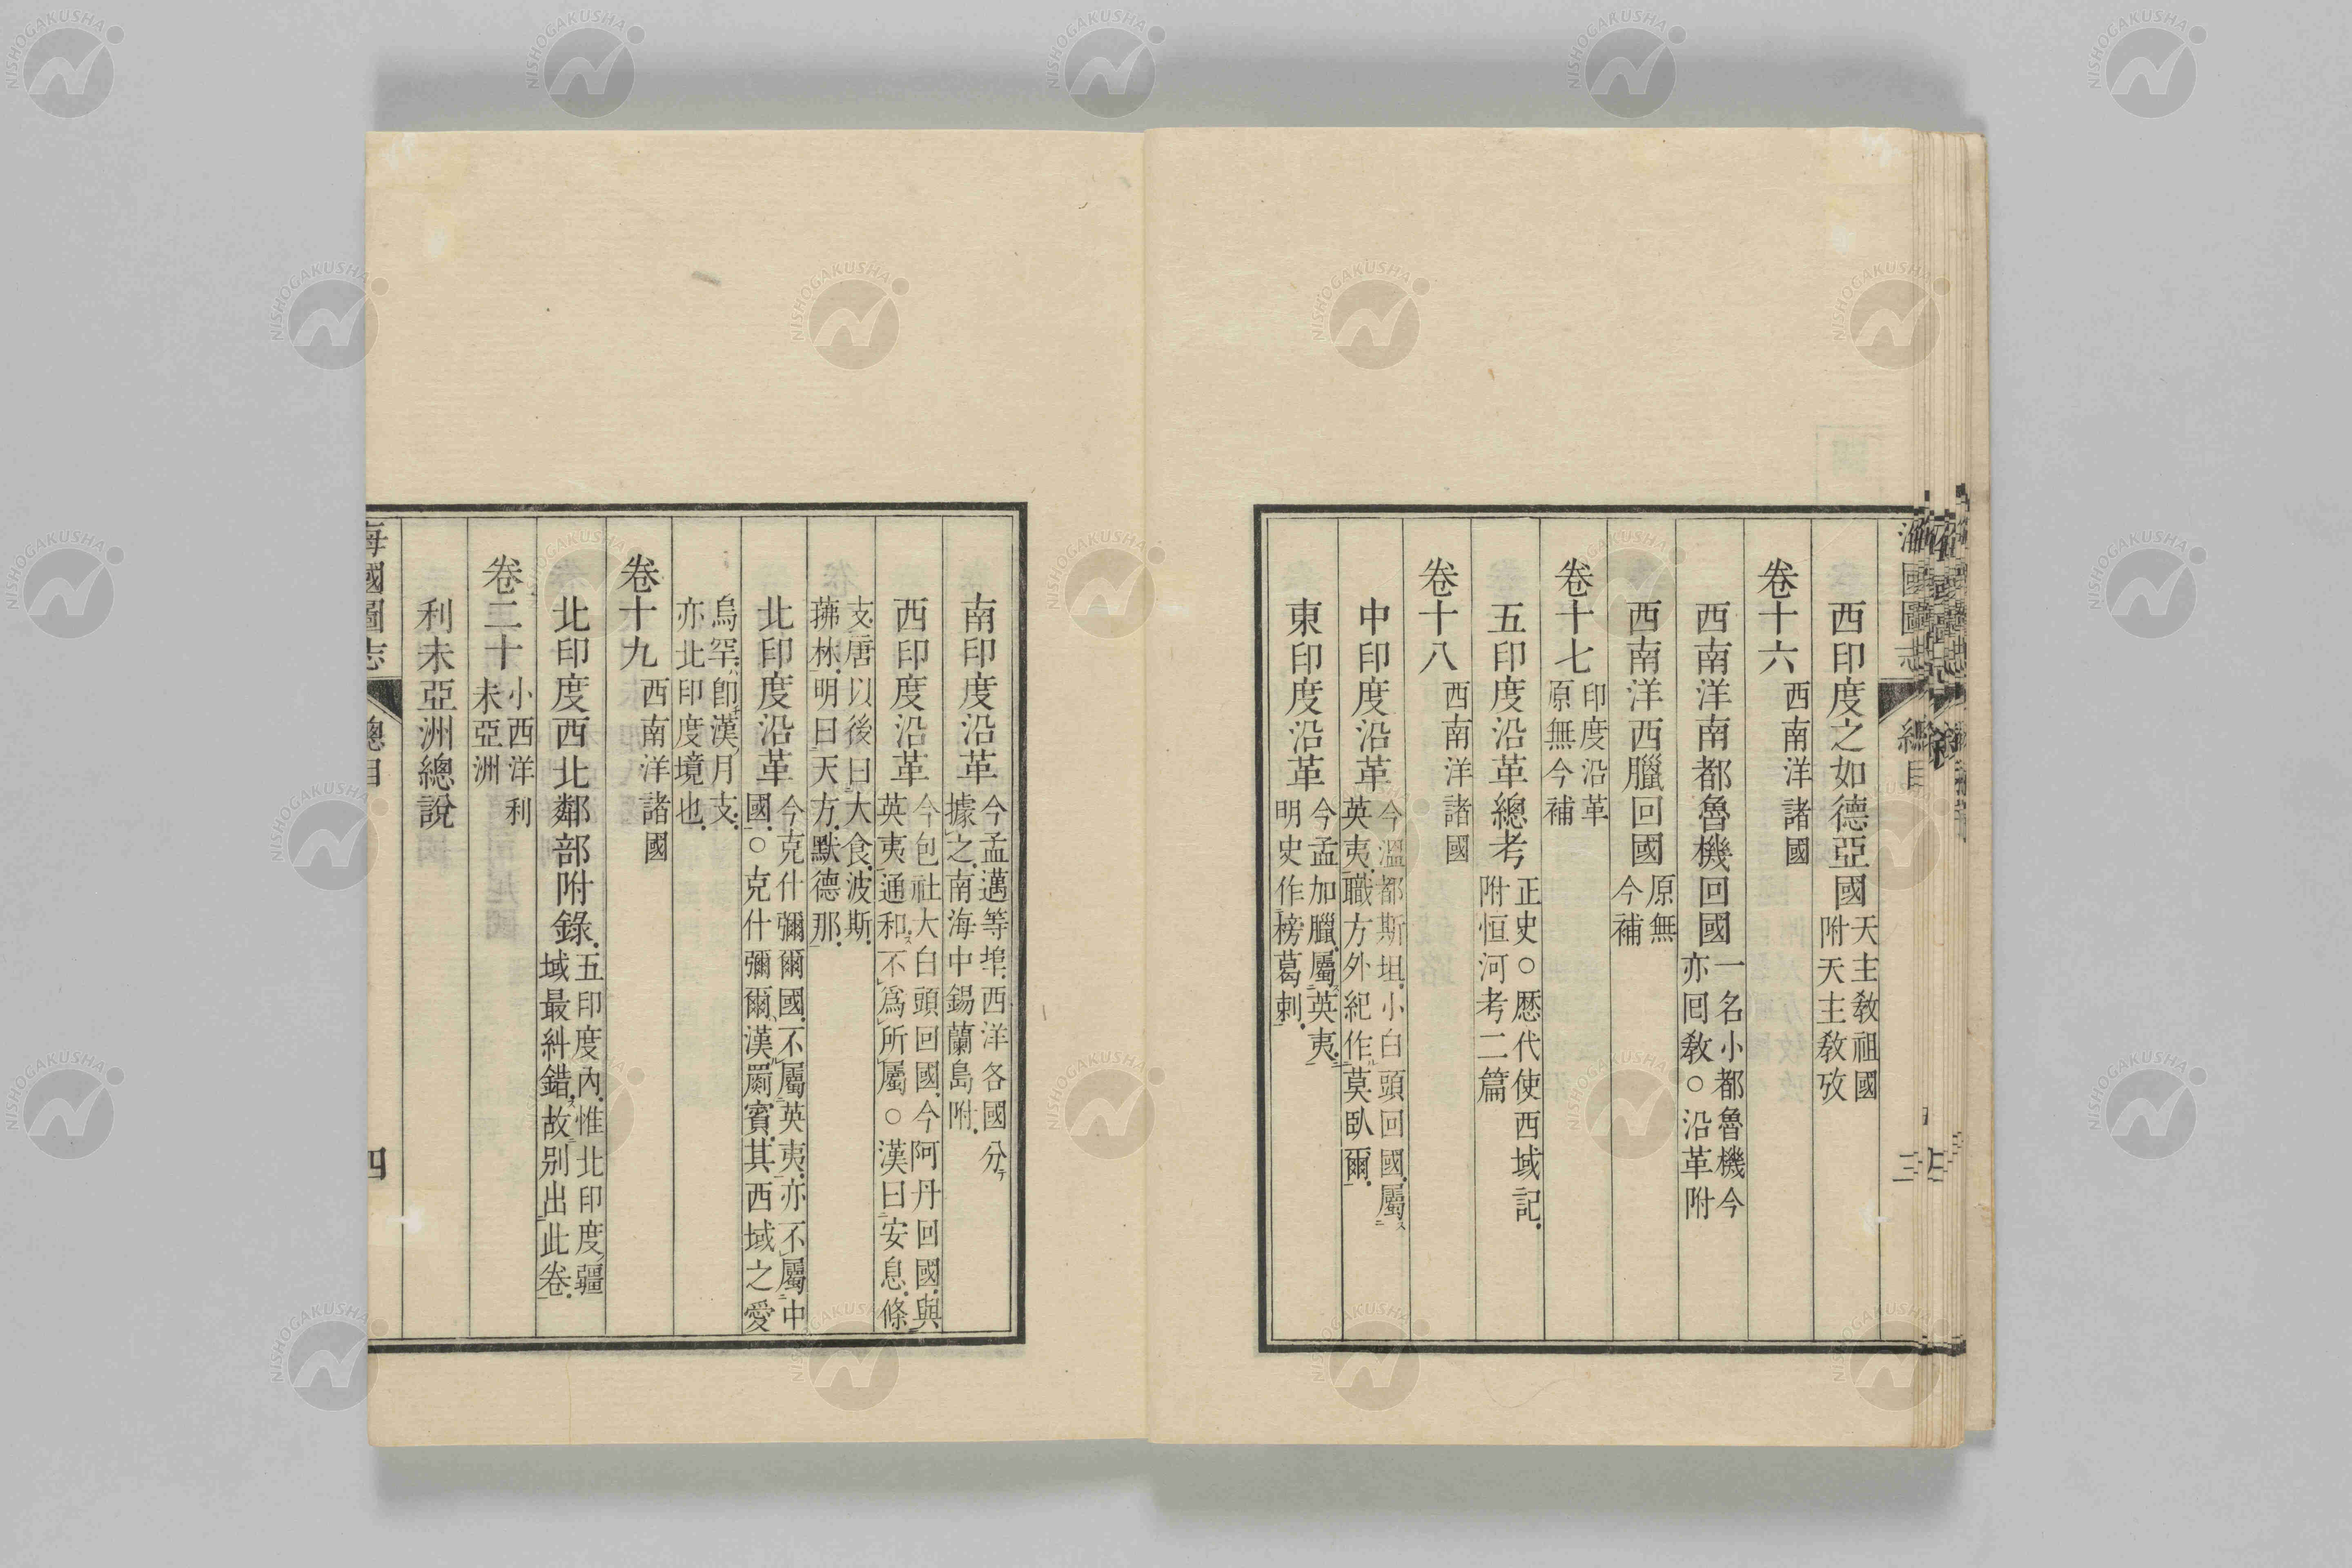 西印度之如德亞國 天主敎祖國
附天主敎攷
卷十六 西南洋諸國
西南洋南都魯機回國 一名小都魯機今
亦囘敎○沿革附
西南洋西臘回國 原無
今補
卷十七 印度沿革
原無今補
五印度沿革總考 正史○歷代使西域記
附恒河考二篇
卷十八 西南洋諸國
中印度沿革 今溫都斯坦小白頭回國屬
英夷職方外紀作莫臥爾
東印度沿革 今孟加臘屬英夷
明史作榜葛剌
海國圖志 總目 三
南印度沿革 今孟邁等埠西洋各國分
據之南海中錫蘭島附
西印度沿革 今包社大白頭回國今阿丹回國與
英夷通和不爲所屬○漢曰安息條
支唐以後曰大食波斯
拂菻明曰天方默德那
北印度沿革 今克什彌爾國不屬英夷亦不屬中
國○克什彌爾漢罽賓其西域之愛
烏罕卽漢月支
亦北印度境也
卷十九 西南洋諸國
北印度西北鄰部附錄 五印度內惟北印度疆
域最糾錯故別出此卷
卷二十 小西洋利
未亞洲
利未亞洲總說
海國圖志 總目 四
NISHOGAKUSHA